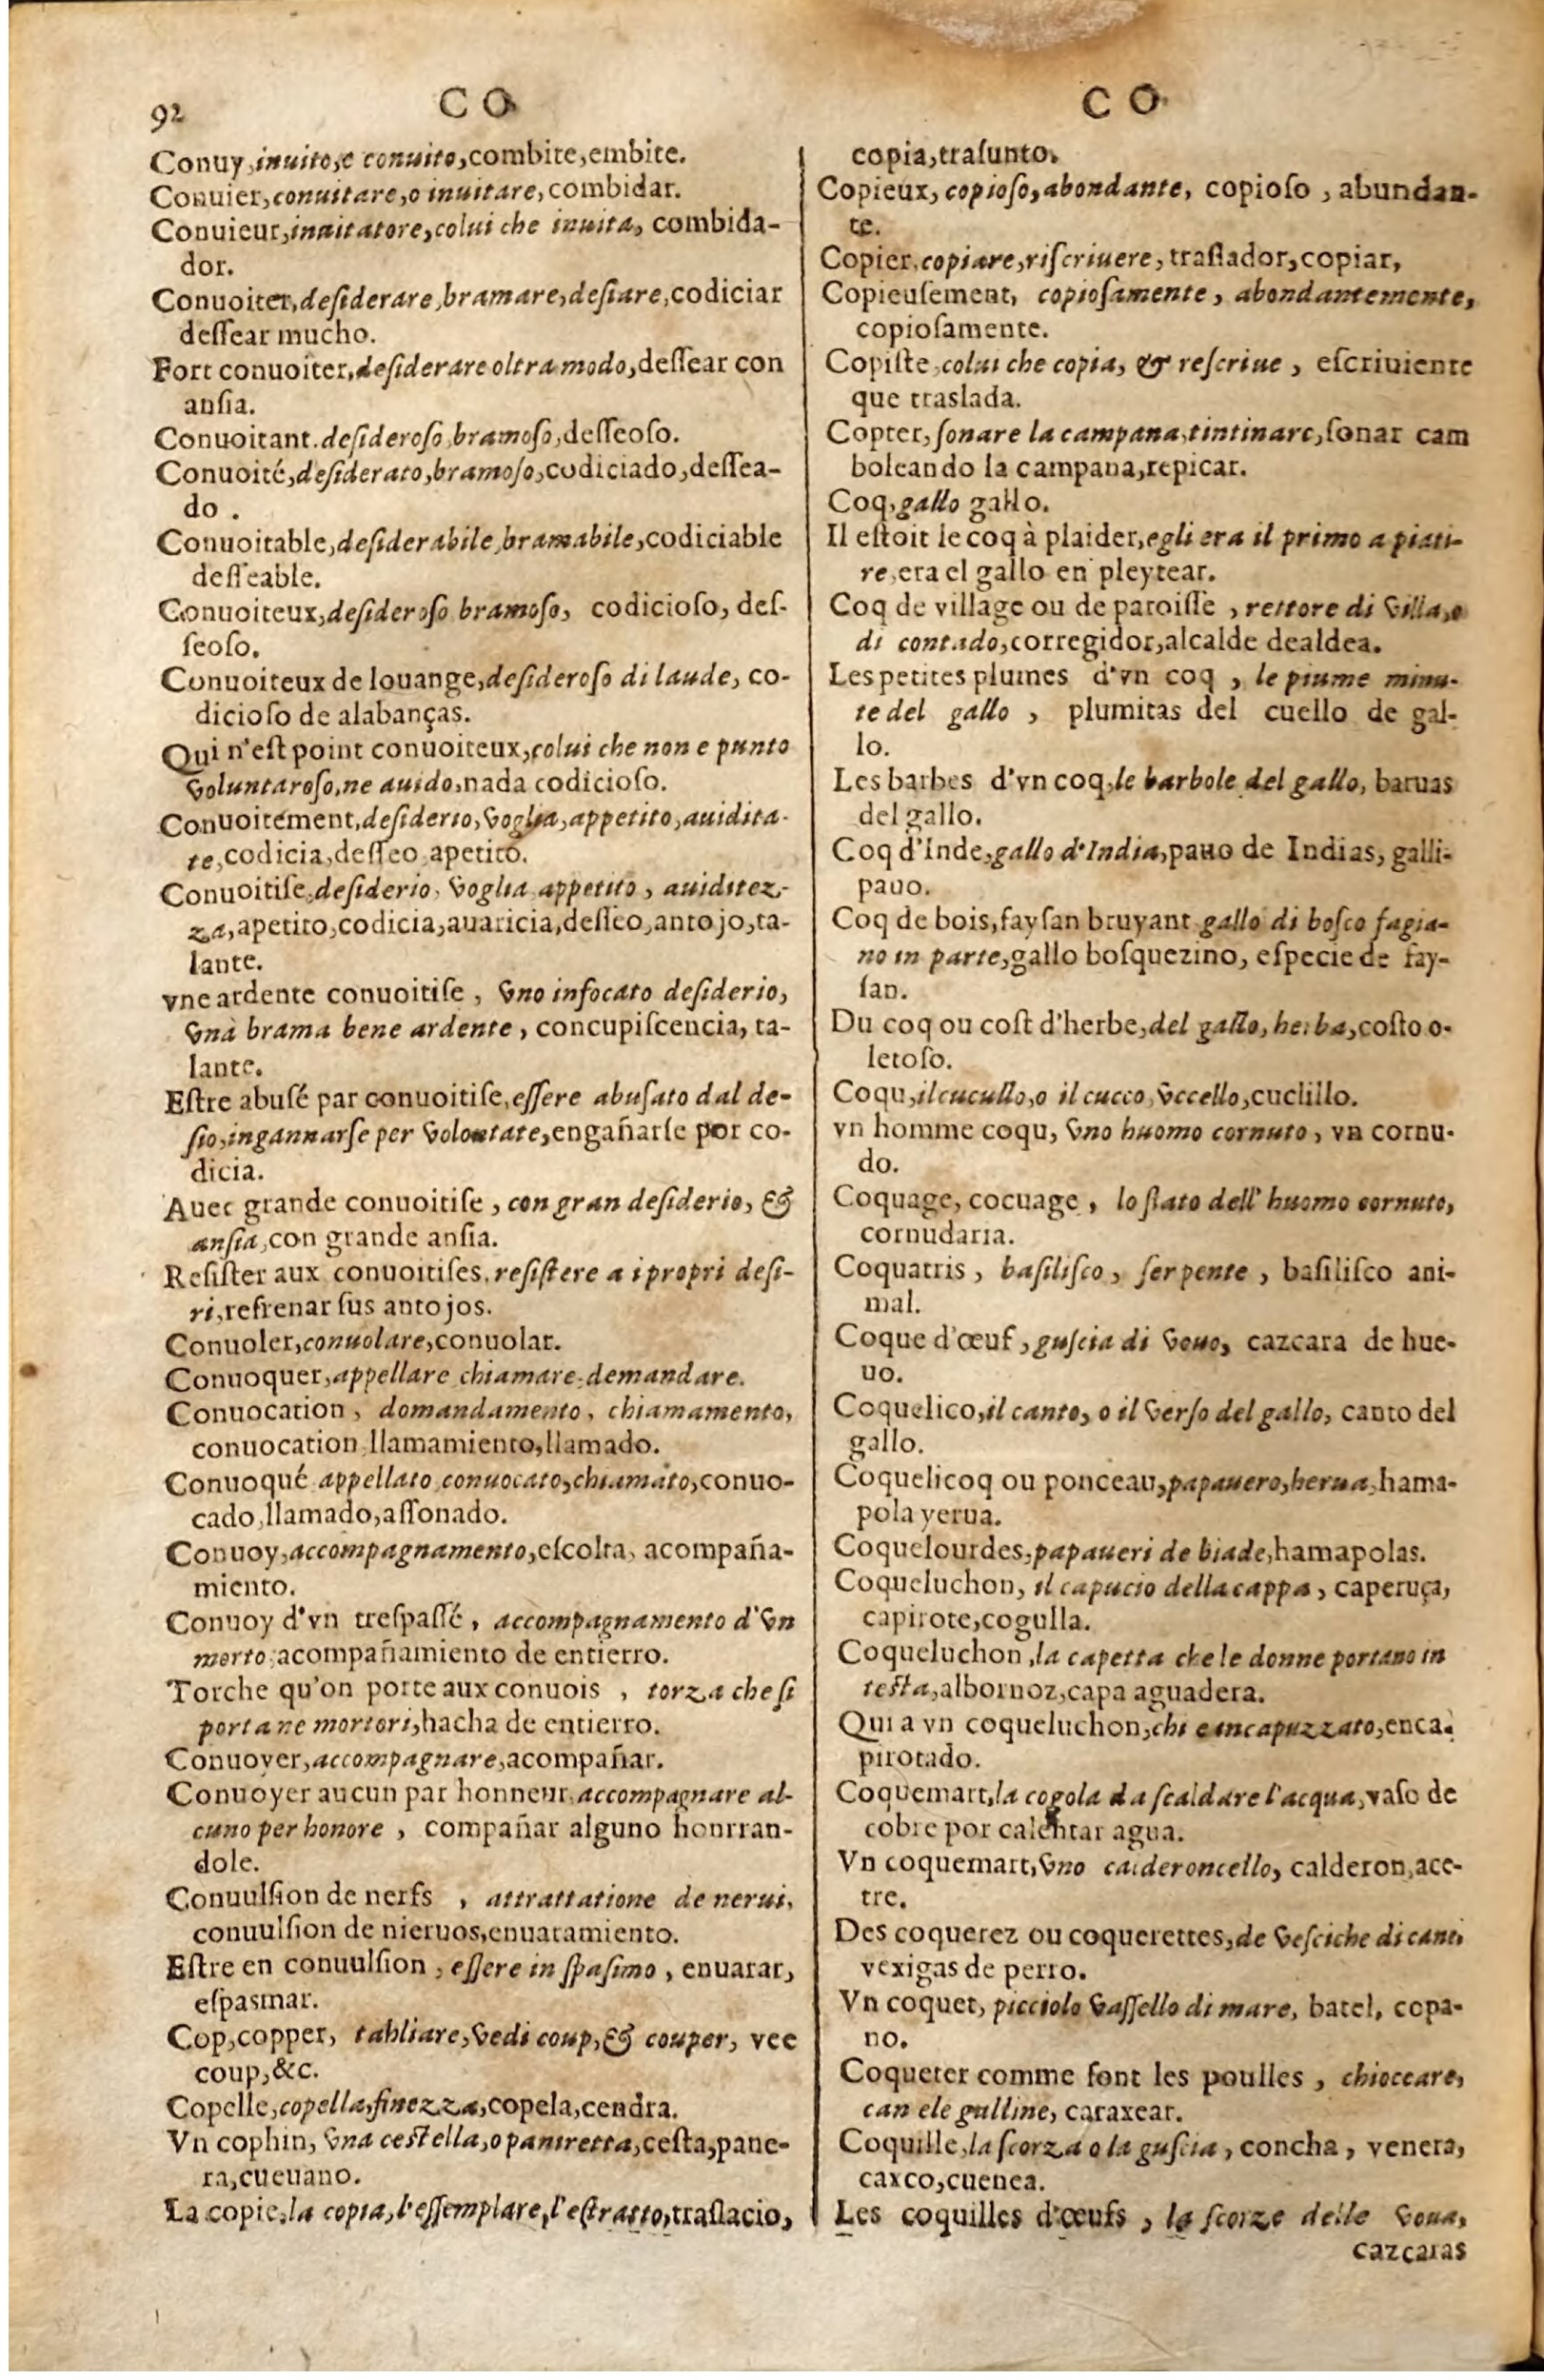 92
CO
CO
Conuy, inuito, e conuito, combite, embite.
Conuier, conuitare, o inuitare, combidar.
Conuieur, inuitatore, colui che inuita, combida-
dor.
Conuoiter, deſiderare, bramare, deſiare, codiciar
deſſear mucho.
Fort conuoiter, deſiderare oltra modo, deſſear con
anſia.
Conuoitant. deſideroſo, bramoſo, deſſeoſo.
Conuoité, deſiderato, bramoſo, codiciado, deſſea-
do.
Conuoitable, deſiderabile, bramabile, codiciable
deſſeable.
Conuoiteux, deſideroſo bramoſo, codicioſo, deſ-
ſeoſo.
Conuoiteux de louange, deſideroſo di laude, co-
dicioſo de alabanças.
Qui n'eſt point conuoiteux, colui che non e punto
voluntaroſo, ne auido, nada codicioſo.
Conuoitement, deſiderio, voglia, appetito, auidita-
te, codicia, deſſeo apetito.
Conuoitiſe, deſiderio, voglia appetito, auiditez-
za, apetito, codicia, auaricia, deſſeo, antojo, ta-
lante.
vne ardente conuoitiſe, vno infocato deſiderio,
vna brama bene ardente, concupiſcencia, ta-
lante.
Eſtre abuſé par conuoitiſe, eſſere abuſato dal de-
ſio, ingannarſe per volontate, engañarſe por co-
dicia.
Auec grande conuoitiſe, con gran deſiderio, &
anſia, con grande anſia.
Reſiſter aux conuoitiſes, reſiſtere a i propri deſi-
ri, refrenar ſus antojos.
Conuoler, conuolare, conuolar.
Conuoquer, appellare chiamare, demandare.
Conuocation, domandamento, chiamamento,
conuocation, llamamiento, llamado.
Conuoqué appellato conuocato, chiamato, conuo-
cado, llamado, aſſonado.
Conuoy, accompagnamento, eſcolta, acompaña-
miento.
Conuoy d'vn treſpaſſé, accompagnamento d'vn
morto, acompañamiento de entierro.
Torche qu'on porte aux conuois, torza che ſi
porta ne mortori, hacha de entierro.
Conuoyer, accompagnare, acompañar.
Conuoyer aucun par honneur, accompagnare al-
cuno per honore, compañar alguno honrran-
dole.
Conuulſion de nerfs, attrattatione de nerui,
conuulſion de nieruos, enuaramiento.
Eſtre en conuulſion, eſſere in ſpaſimo, enuarar,
eſpasmar.
Cop, copper, tahliare, vedi coup, & couper, vee
coup, &c.
Copelle, copella, finezza, copela, cendra.
Vn cophin, vna ceſtella, o paniretta, ceſta, pane-
ra, cueuano.
La copie, la copia, l'eſſemplare, l'eſtratto, traſlacio,
copia, traſunto.
Copieux, copioſo, abondante, copioſo, abundan-
te.
Copier, copiare, riſcriuere, traſlador, copiar,
Copieuſement, copioſamente, abondantemente,
copioſamente.
Copiſte, colui che copia, & reſcriue, eſcriuiente
que traslada.
Copter, ſonare la campana, tintinare, ſonar cam
boleando la campana, repicar.
Coq, gallo gallo.
Il eſtoit le coq à plaider, egli era il primo a piati-
re, era el gallo en pleytear.
Coq de village ou de paroiſſe, rettore di villa, o
di contado, corregidor, alcalde de aldea.
Les petites plumes d'vn coq, le piume minu-
te del gallo, plumitas del cuello de gal-
lo.
Les barbes d'vn coq, le barbole del gallo, baruas
del gallo.
Coq d'Inde, gallo d'India, pauo de Indias, galli-
pauo.
Coq de bois, fayſan bruyant gallo di boſco fagia-
no in parte, gallo boſquezino, eſpecie de fay-
ſan.
Du coq ou coſt d'herbe, del gallo, herba, coſto o-
letoſo.
Coqu, il cucullo, o il cucco, vccello, cuclillo.
vn homme coqu, vno huomo cornuto, vn cornu-
do.
Coquage, cocuage, lo ſtato dell'huomo cornuto,
cornudaria.
Coquatris, baſiliſco, ſerpente, baſiliſco ani-
mal.
Coque d'œuf, guſcia di vouo, cazcara de hue-
uo.
Coquelico, il canto, o il verſo del gallo, canto del
gallo.
Coquelicoq ou ponceau, papauero, herua, hama-
pola yerua.
Coquelourdes, papaueri de biade, hamapolas.
Coqueluchon, il capucio della cappa, caperuça,
capirote, cogulla.
Coqueluchon, la capetta che le donne portano in
teſta, albornoz, capa aguadera.
Qui a vn coqueluchon, chi e incapuzzato, enca-
pirotado.
Coquemart, la cogola da ſcaldare l'acqua, vaſo de
cobre por calentar agua.
Vn coquemart, vno calderoncello, calderon, ace-
tre.
Des coquerez ou coquerettes, de veſciche di cani
vexigas de perro.
Vn coquet, picciolo vaſſello di mare, batel, copa-
no.
Coqueter comme font les poulles, chioccare,
can ele galline, caraxear.
Coquille, la ſcorza o la guſcia, concha, venera,
caxco, cuenea.
Les coquilles d'œufs, la ſcorze delle voua,
cazcaras